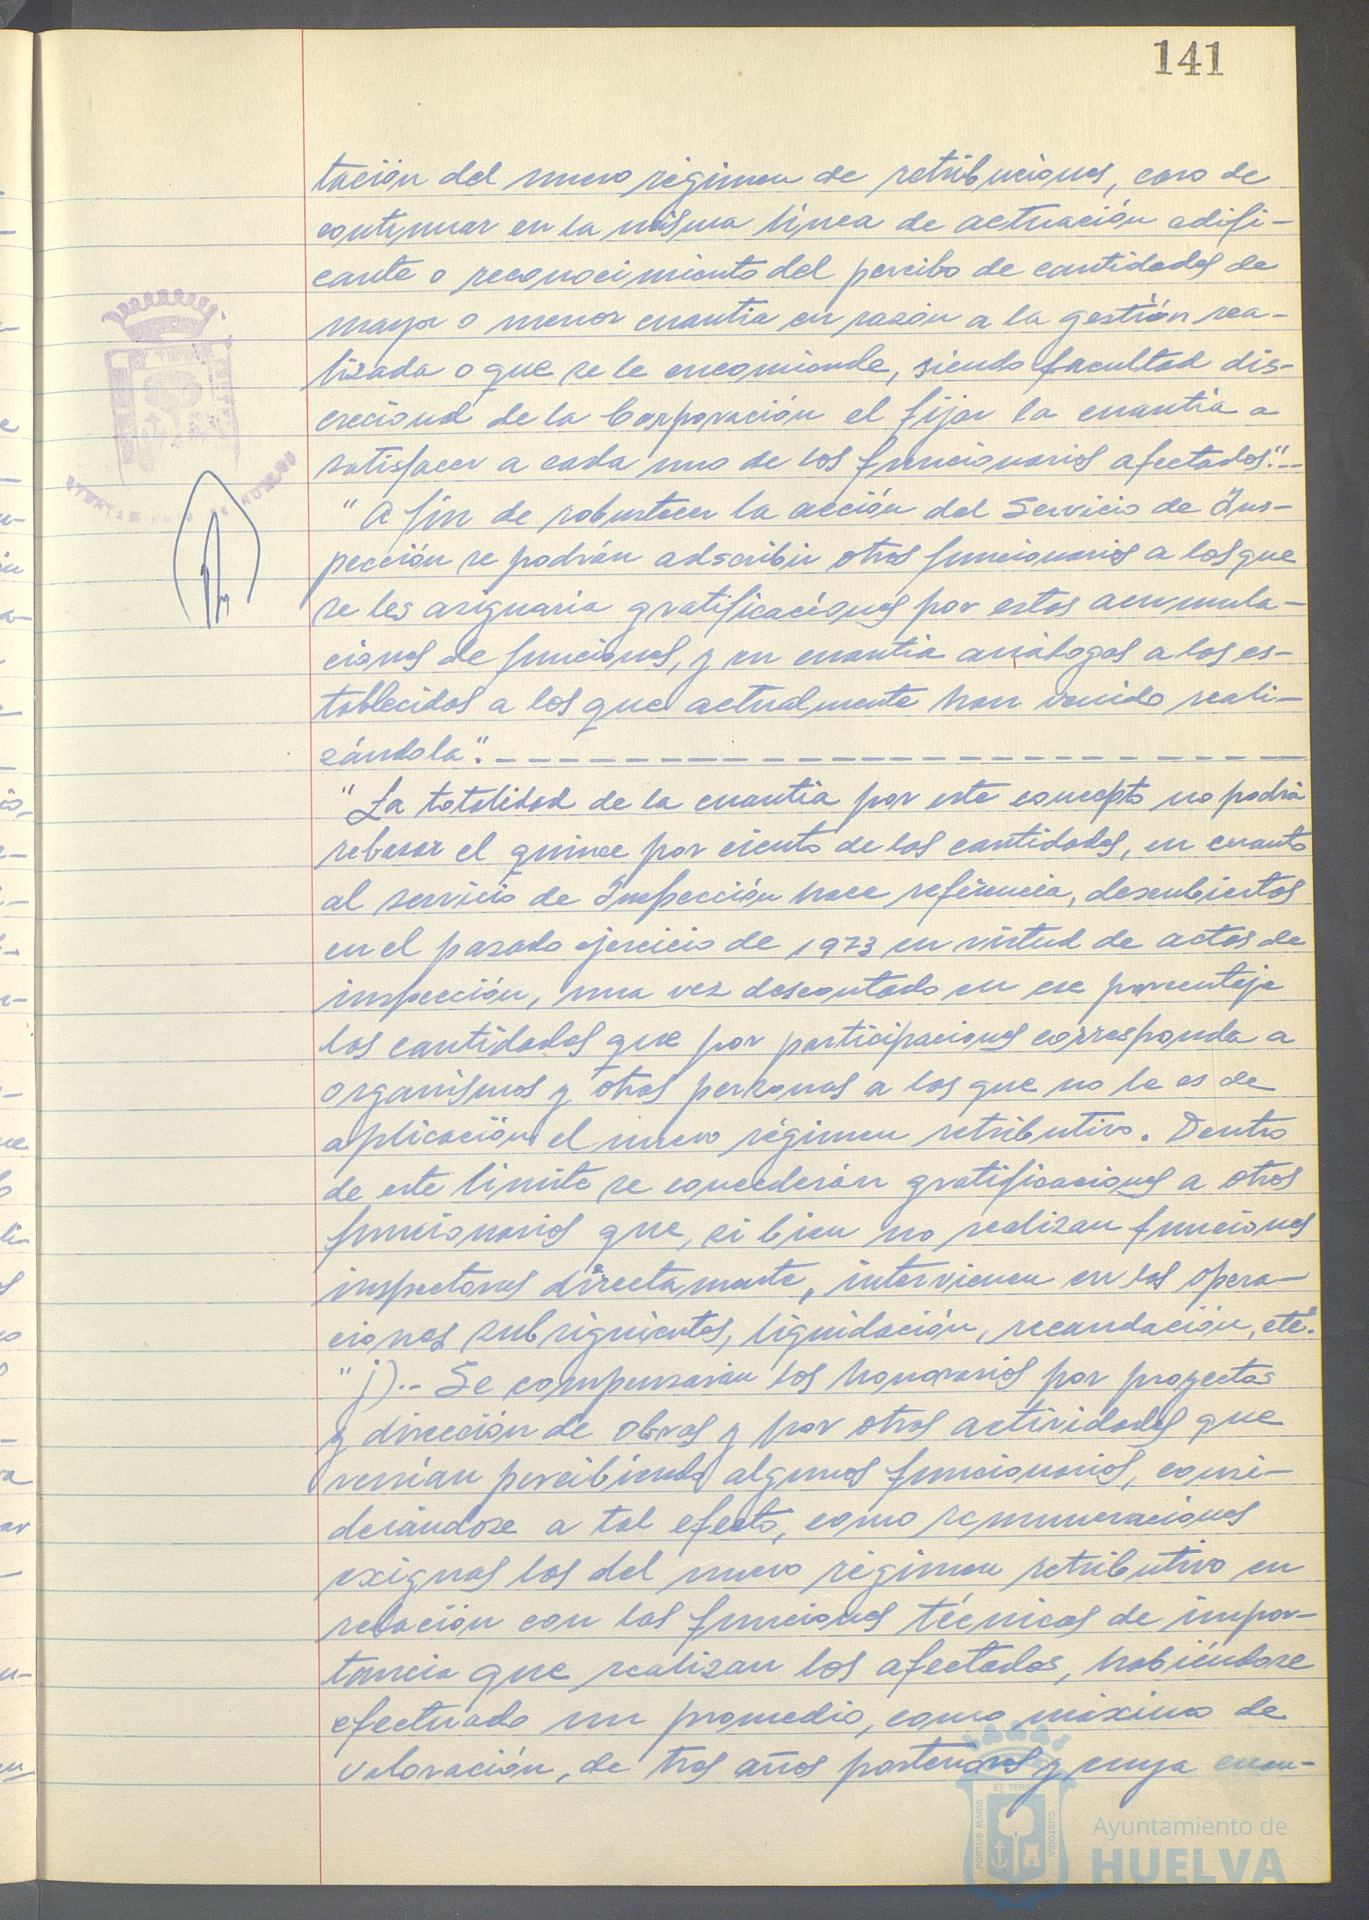 141
tación del nuevo régimen de retribuciones, caso de
continuar en la misma línea de actuación edifi-
cante o reconocimiento del percibo de cantidades de
mayor o menor cuantia en razón a la gestión rea-
lizada o que se le encomiende, siendo facultad dis-
crecional de la Corporación el fijar la cuantia a
satisfacer a cada uno de los funcionarios afectados".-
"A fin de robustecer la acción del Servicio de Ins-
pección se podrán adscribir otros funcionarios a los que
se les asignaria gratificaciones por estas acumula-
ciones de funciones, y en cuantia análogas a los es-
tablecidos a los que actualmente han venido reali-
zándola".- - - - - - - - - - - - - - - - -
"La totalidad de la cuantia por este concepto no podrá
rebasar el quince por ciento de las cantidades, en cuanto
al servicio de Inspección hace referencia, descubiertas
en el pasado ejercicio de 1973 en virtud de actos de
inspección, una vez descontado en ese porcentaje
las cantidades que por participaciones corresponda a
organismos y otras personas a los que no le es de
aplicación el nuevo régimen retributivo. Dentro
de este límite se concederán gratificaciones a otros
funcionarios que, si bien no realizan funciones
inspectoras directamente, intervienen en las opera-
ciones subsiguientes, liquidación, recaudación, etc".
"j).- Se compensarán los honorarios por proyectos
y dirección de obras y por otras actividades que
venían percibiendo algunos funcionarios, consi-
derándose a tal efecto, como remuneraciones
exiguas las del nuevo régimen retributivo en
relación con las funciones técnicas de impor-
tancia que realizan los afectados, habiéndose
efectuado un promedio, como máximo de
valoración, de tres años posteriores y cuya cuan-
PORTUS MARIS
ET TERRAE
CUSTODIA
Ayuntamiento de
HUELVA